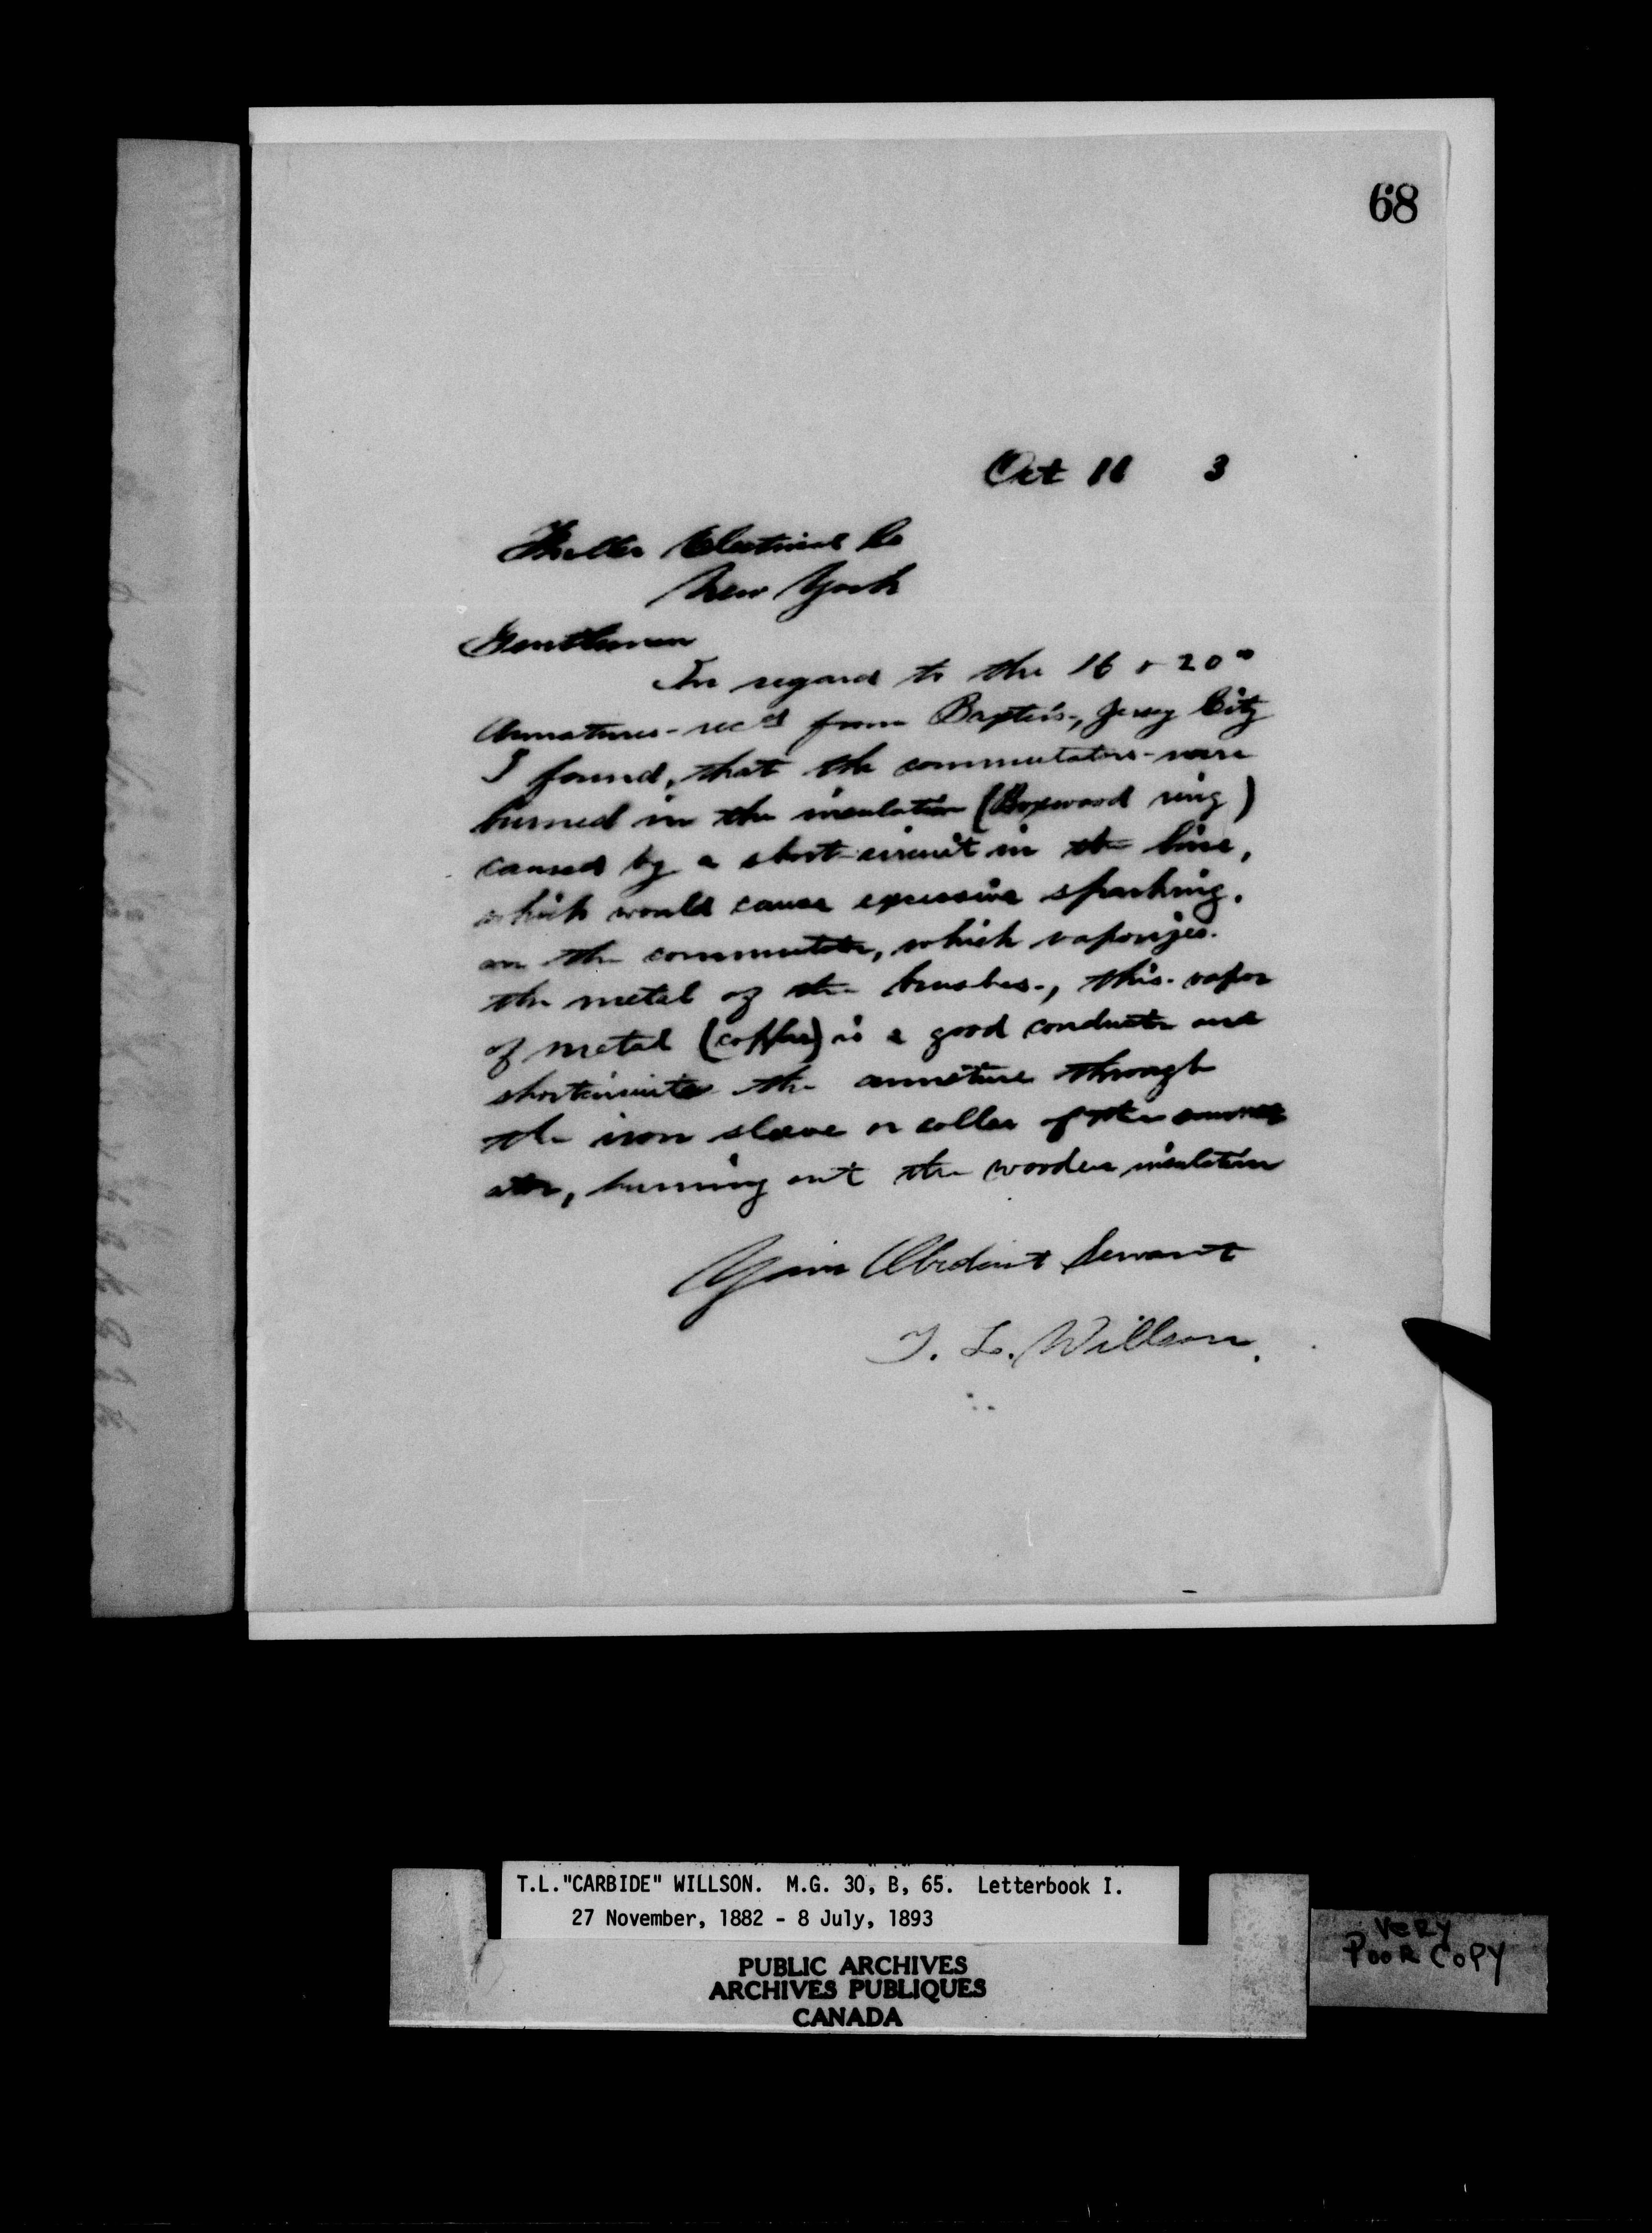 68
Oct 16 3
Electrical Co
New York
Gentlemen
In regard to the 16 & 20"
Armatures rec'd from Baptis, Jersey City
I found, that the commutators were
burned in the insulation (Boxwood ring)
caused by a short-circuit in the line,
which would cause excessive sparking.
on the commutator, which vaporizes.
the metal of the brushes, this vapor
of metal (copper) is a good conductor and
shortcircuits the armature through
the iron sleave or collar of the commut
ator, burning out the wooden insulation
Your Obedient Servant
T. L. Willson.
T.L."CARBIDE" WILLSON. M.G. 30, B, 65. Letterbook I.
27 November, 1882 - 8 July, 1893
PUBLIC ARCHIVES
ARCHIVES PUBLIQUES
CANADA
VERY
POOR COPY